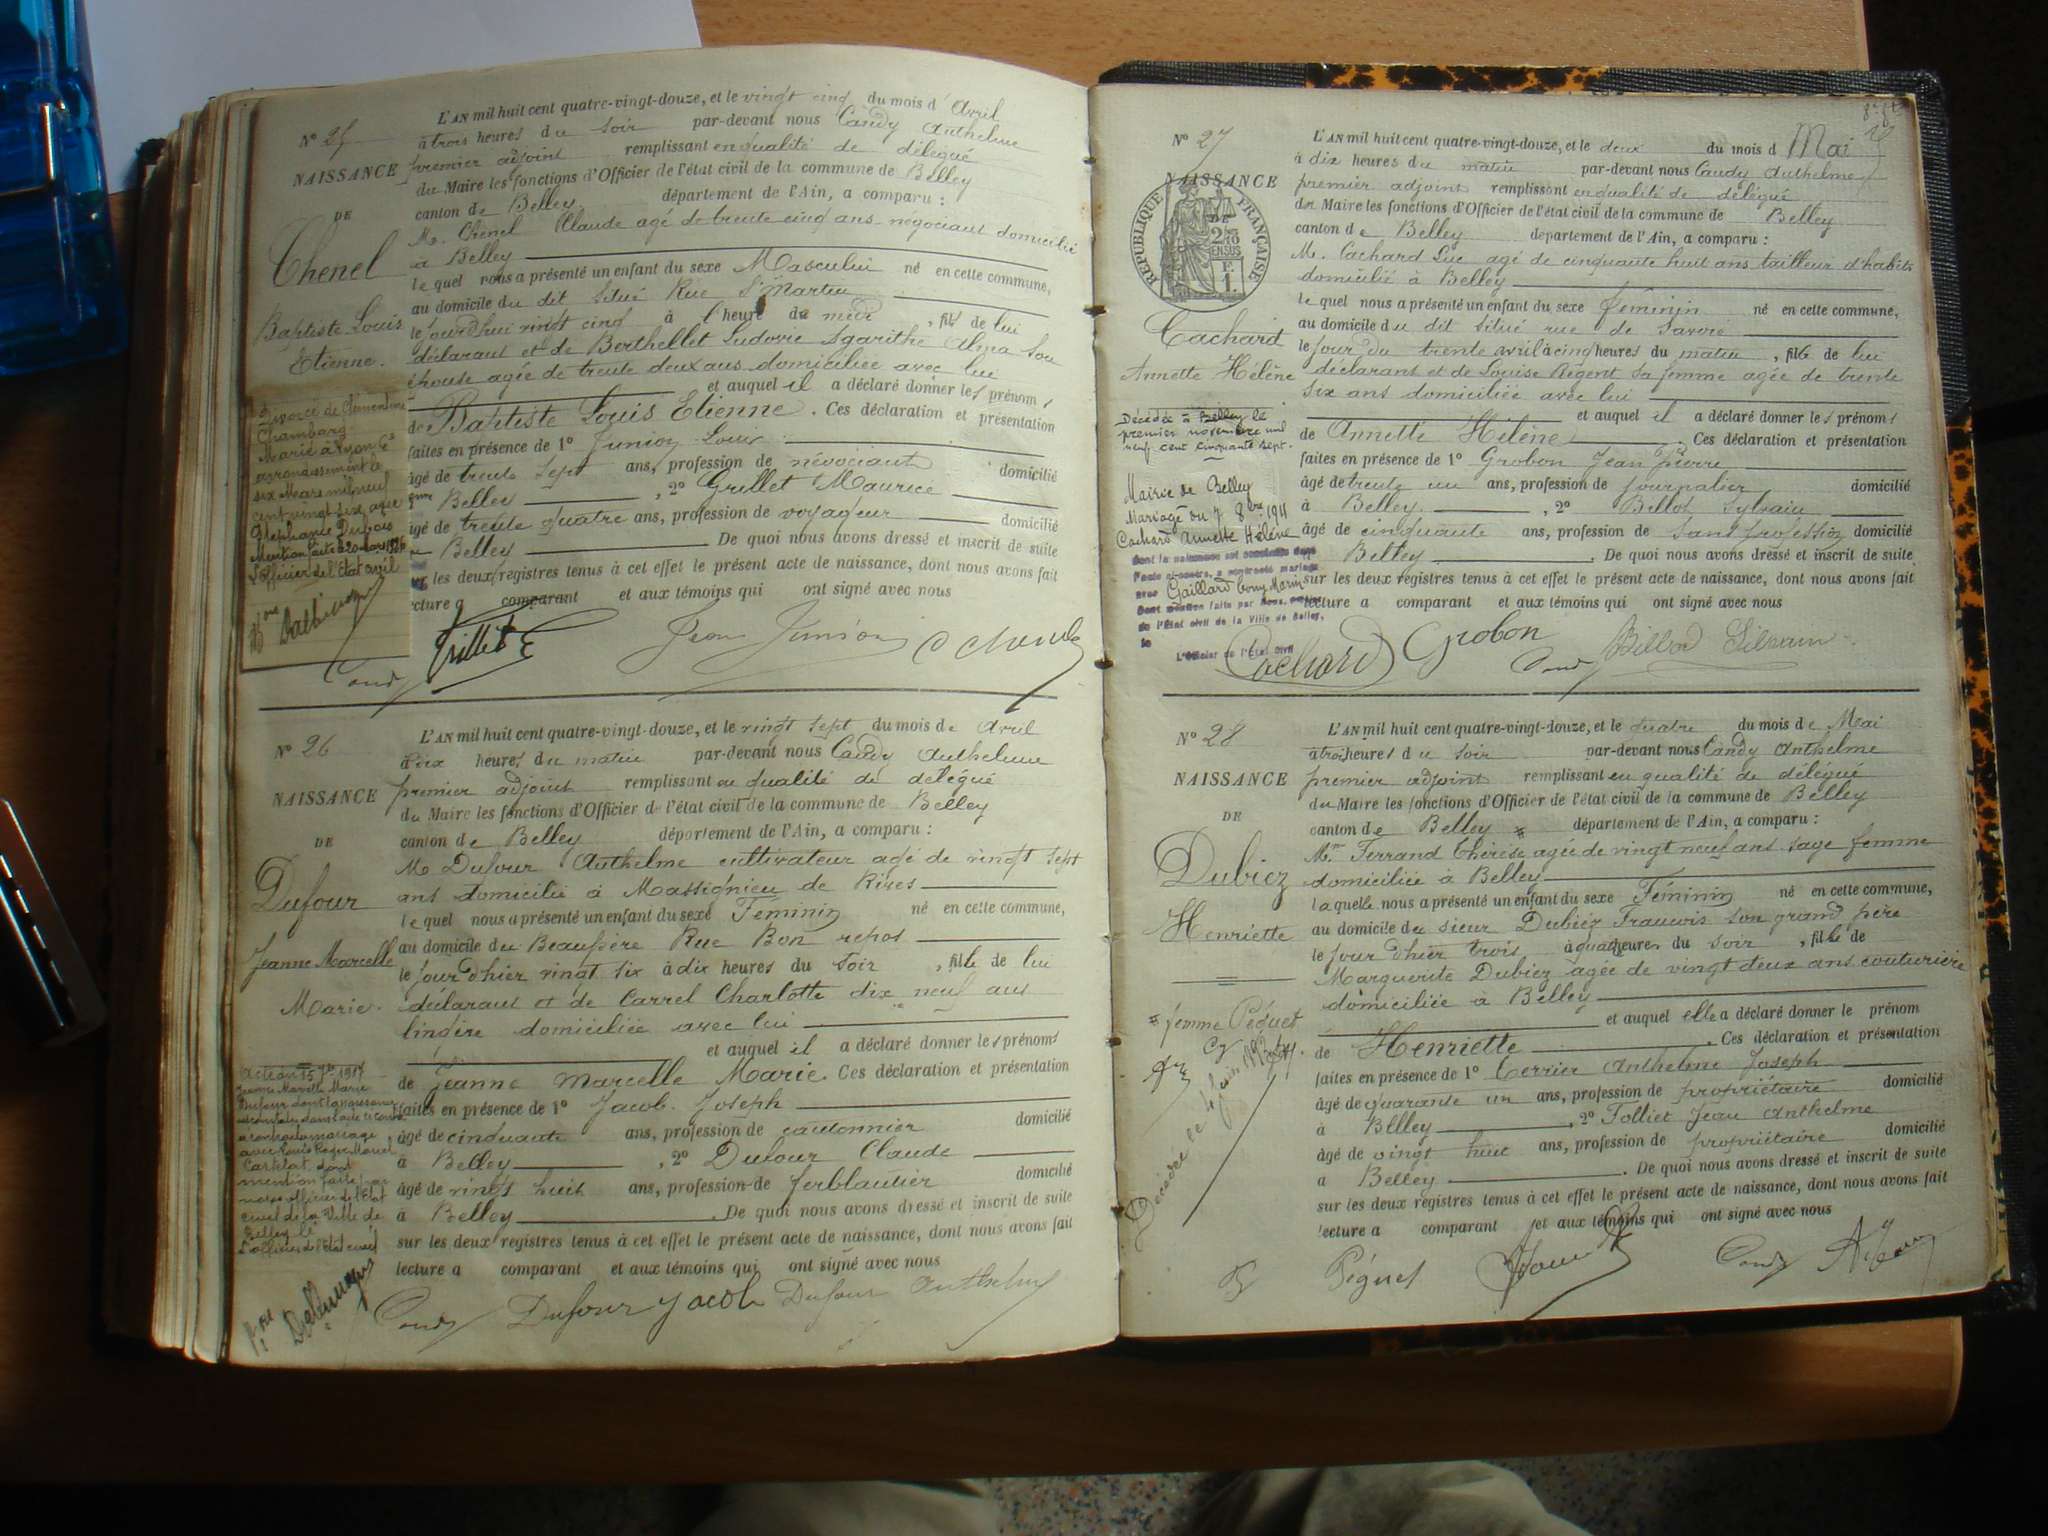 L'AN mil huit cent quatre-vingt-douze, et le vingt cinq du mois d' Avril
N° 25
à trois heures du soir par-devant nous Candy Anthelme
premier adjoint remplissant en qualité de délégué
NAISSANCE
du Maire les fonctions d'Officier de l'état civil de la commune de Belley
canton de Belley département de l'Ain, a comparu :
DE
M. Chenel Claude agé de trente cinq ans négociant domicilié
à Belley
Chenel
le quel nous a présenté un enfant du sexe Masculin né en cette commune,
au domicile du dit situé Rue St Martin
Baptiste Louis
Etienne.
le jourd'hui vingt cinq à l'heure de midi, fils de lui
déclarant et de Berthellet Ludovie Agarithe Alma son
épouse agée de trente deux ans domiciliée avec lui
et auquel il a déclaré donner les prénoms
de Baptiste Louis Etienne. Ces déclaration et présentation
faites en présence de 1° Junion Louis
âgé de trente sept ans, profession de négociant domicilié
Belley, 2° Grillet Maurice
âgé de trente quatre ans, profession de voyageur domicilié
Belley De quoi nous avons dressé et inscrit de suite
les deux registres tenus à cet effet le présent acte de naissance, dont nous avons fait
lecture a comparant et aux témoins qui ont signé avec nous
Divorcé de Clementine
Chambard
Marié à Lyon 6e
arrondissement le
six Mars mil neuf
cent vingt six avec
Stéphanie Dubois
Mention faite le 20 mars 1926
L'officier de l'Etat civil
Candy Grillet Jean Junion C Chenel
L'AN mil huit cent quatre-vingt-douze, et le vingt sept du mois de Avril
N° 26
à dix heures du matin par-devant nous Candy Anthelme
premier adjoint remplissant en qualité de délégué
NAISSANCE
du Maire les fonctions d'Officier de l'état civil de la commune de Belley
DE
canton de Belley département de l'Ain, a comparu :
M Dufour Anthelme cultivateur agé de vingt sept
ans domicilié à Massignieu de Rives
Dufour
le quel nous a présenté un enfant du sexe Féminin né en cette commune,
au domicile du Beaupère Rue Bon repos
Jeanne Marcelle
Marie.
le jour d'hier vingt six à dix heures du soir, fille de lui
déclarant et de Carrel Charlotte dix neuf ans
lingère domiciliée avec lui
et auquel il a déclaré donner les prénoms
de Jeanne Marcelle Marie. Ces déclaration et présentation
faites en présence de 1° Jacob Joseph
âgé de cinquante ans, profession de cantonnier domicilié
à Belley, 2° Dufour Claude
âgé de vingt huit ans, profession de ferblantier domicilié
à Belley De quoi nous avons dressé et inscrit de suite
sur les deux registres tenus à cet effet le présent acte de naissance, dont nous avons fait
lecture a comparant et aux témoins qui ont signé avec nous
Jeanne Marcelle Marie
Dufour dont la naissance
a contracté mariage
avec Louis Roger Marcel
Castelat, dont
mention faite par
nous officier de l'Etat
civil de la Ville de
Belley le
L'officier de l'Etat civil
Candy Dufour Jacob Dufour Anthelme
L'AN mil huit cent quatre-vingt-douze, et le deux du mois d Mai
N° 27
à dix heures du matin par-devant nous Candy Anthelme
NAISSANCE
premier adjoint remplissant en qualité de délégué
du Maire les fonctions d'Officier de l'état civil de la commune de Belley
DE
RÉPUBLIQUE FRANÇAISE
canton de Belley département de l'Ain, a comparu :
M. Cachard Luc agé de cinquante huit ans tailleur d'habits
domicilié à Belley
le quel nous a présenté un enfant du sexe féminin né en cette commune,
au domicile du dit situé rue de Savoie
Cachard
Annette Hélène
le jour du trente avril à cinq heures du matin, fille de lui
déclarant et de Louise Régent sa femme agée de trente
six ans domiciliée avec lui
et auquel il a déclaré donner les prénoms
de Annette Hélène. Ces déclaration et présentation
faites en présence de 1° Grobon Jean Pierre
âgé de trente un ans, profession de journalier domicilié
à Belley, 2° Billot Sylvain
âgé de cinquante ans, profession de sans profession domicilié
Belley. De quoi nous avons dressé et inscrit de suite
sur les deux registres tenus à cet effet le présent acte de naissance, dont nous avons fait
lecture a comparant et aux témoins qui ont signé avec nous
Décédée à Belley le
premier novembre mil
neuf cent cinquante sept.
Mairie de Belley
Mariage du 7 8bre 1911
Cachard Annette Hélène
dont la naissance est constatée dans
l'acte ci-contre, a contracté mariage
avec Gaillard Marin
dont mention faite par nous, officier
de l'État civil de la Ville de Belley,
le
L'Officier de l'État Civil
Cachard Grobon Candy Billot Silvain
L'AN mil huit cent quatre-vingt-douze, et le quatre du mois de Mai
N° 28
à trois heures du soir par-devant nous Candy Anthelme
NAISSANCE
premier adjoint remplissant en qualité de délégué
du Maire les fonctions d'Officier de l'état civil de la commune de Belley
DE
canton de Belley département de l'Ain, a comparu :
Mme Ferrand Thérèse agée de vingt neuf ans sage femme
Dubiez
domiciliée à Belley
laquelle nous a présenté un enfant du sexe Féminin né en cette commune,
Henriette
au domicile du sieur Dubiez François son grand père
le jour d'hier trois à quatre heures du soir, fille de
Marguerite Dubiez agée de vingt deux ans couturière
domiciliée à Belley
et auquel elle a déclaré donner le prénom
de Henriette. Ces déclaration et présentation
faites en présence de 1° Cerrier Anthelme Joseph
âgé de quarante un ans, profession de propriétaire domicilié
à Belley, 2° Folliet Jean Anthelme
âgé de vingt huit ans, profession de propriétaire domicilié
à Belley. De quoi nous avons dressé et inscrit de suite
sur les deux registres tenus à cet effet le présent acte de naissance, dont nous avons fait
lecture a comparant et aux témoins qui ont signé avec nous
femme Péguet
Décédée le juin 1893
Péguet Candy